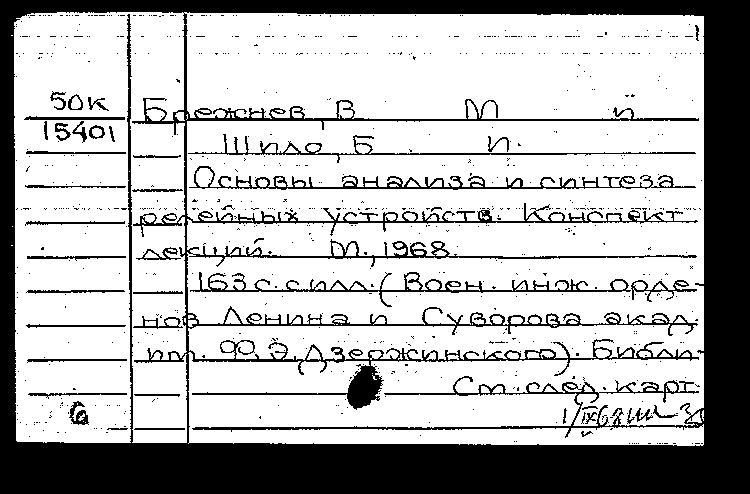 50К Брежнев, В М и
15401 Шило, Б И.
Основы анализа и синтеза
релейных устройств. Конспект
лекций. М., 1968.
163 с. с илл. (Воен. инж. орде-
нов Ленина и Суворова акад.
им. Ф. Э. Дзержинского). Библи-
См. след. карт
6